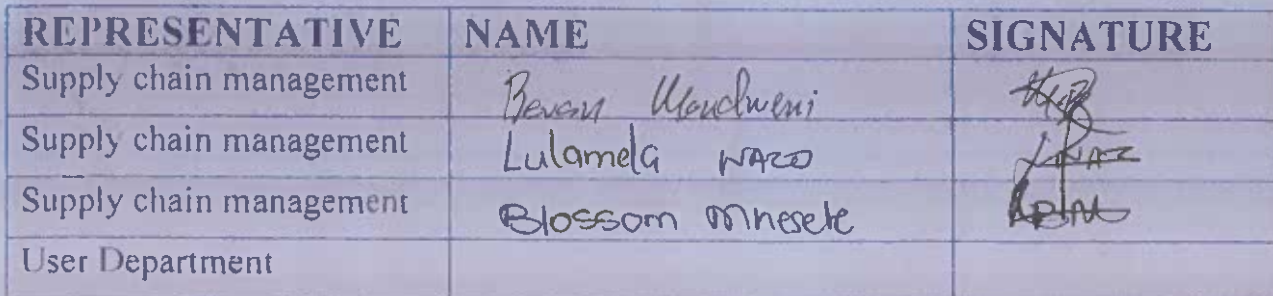 REPRESENTATIVE NAME SIGNATURE
Supply chain management Bevan Mandweni
Supply chain management Lulamela NAZO
Supply chain management Blossom Mnesele
User Department